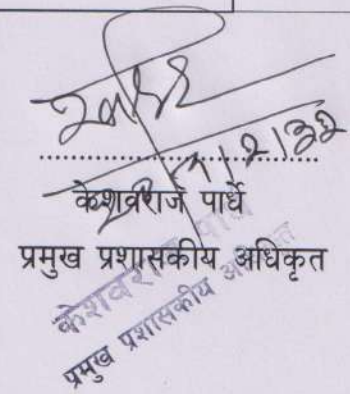 केशवराज पार्धे
प्रमुख प्रशासकीय अधिकृत
केशवराज पार्धे
प्रमुख प्रशासकीय अधिकृत